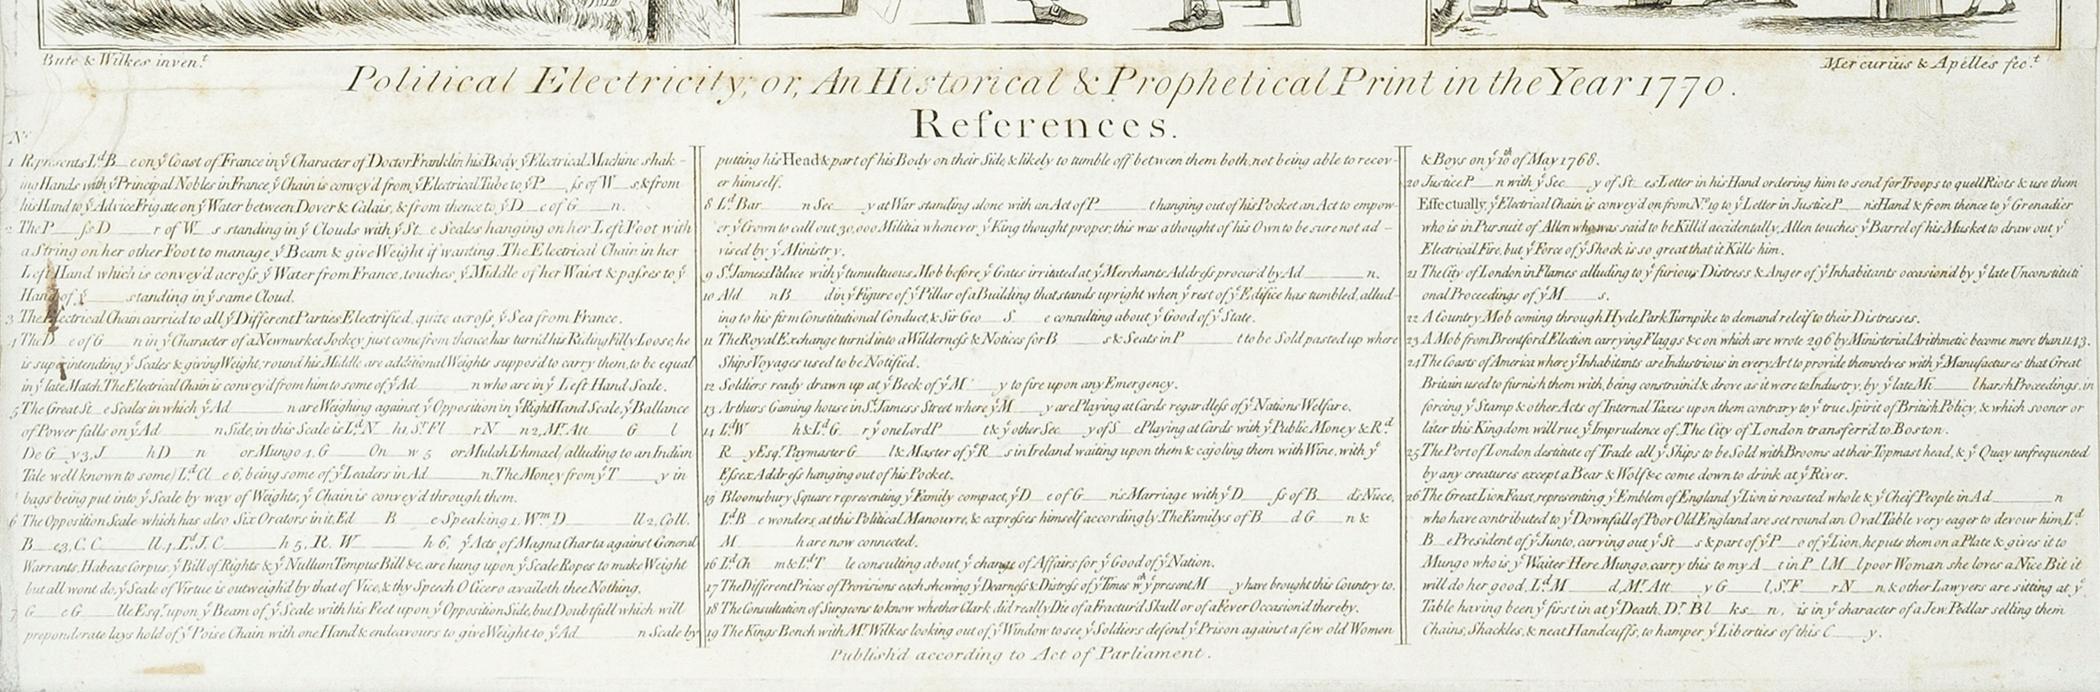 Bute & Wilkes inven.t
Mercurius & Apelles fec.t
Political Electricity; or, An Historical & Prophetical Print in the Year 1770.
References.
No
1 Represents Ld B__e on ye Coast of France in ye Character of Doctor Franklin his Body ye Electrical Machine shak-
ing Hands with ye Principal Nobles in France ye Chain is convey'd from ye Electrical Tube to ye P___ss of W__s, & from
his Hand to ye Advice Frigate on ye Water between Dover & Calais, & from thence to ye D__e of G___n.
2 The P___ss D____r of W__s standing in ye Clouds with ye St_e Scales hanging on her Left Foot with
a String on her other Foot to manage ye Beam & give Weight if wanting. The Electrical Chain in her
Left Hand which is convey'd across ye Water from France, touches ye Middle of her Waist & passes to ye
Hand of ye ____ standing in ye same Cloud.
3 The Electrical Chain carried to all ye Different Parties Electrified, quite across ye Sea from France.
4 The D__e of G___n in ye Character of a Newmarket Jockey, just come from thence has turn'd his Riding Filly Loose, he
is superintending ye Scales & giving Weight, round his Middle are additional Weights suppos'd to carry them, to be equal
in ye late Match. The Electrical Chain is convey'd from him to some of ye Ad_____n who are in ye Left Hand Scale.
5 The Great St__e Scales in which ye Ad_____n are Weighing against ye Opposition in ye Right Hand Scale, ye Ballance
of Power falls on ye Ad_____n Side, in this Scale is Ld N__h 1, Sr Fl___r N__n 2, Mr Att____ G___l
De G__y 3, J____h D__n or Mungo 4, G____ On__w 5 or Mulah Ishmael, alluding to an Indian
Tale well known to some, Ld Cl__e 6, being some of ye Leaders in Ad_____n. The Money from ye T____y in
bags being put into ye Scale by way of Weights, ye Chain is convey'd through them.
6 The Opposition Scale which has also Six Orators in it, Ed___ B___e Speaking 1, Wm D_____ll 2, Coll.
B__e 3, C. C____ll 4, Ld J. C_____h 5, R. W_____h 6, ye Acts of Magna Charta against General
Warrants, Habeas Corpus, ye Bill of Rights & ye Nullum Tempus Bill &c. are hung upon ye Scale Ropes to make Weight
but all wont do, ye Scale of Virtue is outweigh'd by that of Vice, & thy Speech O Cicero availeth thee Nothing.
7 G____e G____lle Esqr. upon ye Beam of ye Scale with his Feet upon ye Opposition Side, but Doubtfull which will
preponderate lays hold of ye Poise Chain with one Hand & endeavours to give Weight to ye Ad_____n Scale by
putting his Head & part of his Body on their Side, & likely to tumble off between them both, not being able to recov-
er himself.
8 Ld Bar____n Sec____y at War standing alone with an Act of P_____t hanging out of his Pocket an Act to empow-
er ye Crown to call out 30,000 Militia whenever ye King thought proper, this was a thought of his Own to be sure not ad-
vised by ye Ministry.
9 St. James's Palace with ye tumultuous Mob before ye Gates irritated at ye Merchants Address procur'd by Ad_____n.
10 Ald___n B____d in ye Figure of ye Pillar of a Building that stands upright when ye rest of ye Edifice has tumbled, allud-
ing to his firm Constitutional Conduct, & Sir Geo___ S____e consulting about ye Good of ye State.
11 The Royal Exchange turn'd into a Wilderness & Notices for B_____s & Seats in P_____t to be Sold pasted up where
Ships Voyages used to be Notified.
12 Soldiers ready drawn up at ye Beck of ye M____y to fire upon any Emergency.
13 Arthurs Gaming house in St. James's Street where ye M____y are Playing at Cards regardless of ye Nations Welfare.
14 Ld W____h & Ld G___r ye one Lord P____t & ye other Sec____y of S__e Playing at Cards with ye Public Money & Rd
R__y Esqr. Paymaster G___l & Master of ye R__s in Ireland waiting upon them & cajoling them with Wine, with ye
Essex Address hanging out of his Pocket.
15 Bloomsbury Square representing ye Family compact, ye D__e of G___n's Marriage with ye D____ss of B___ds Niece,
Ld B__e wonders at this Political Manouvre, & expresses himself accordingly. The Familys of B___d G___n &
M_____h are now connected.
16 Ld Ch___m & Ld T___le consulting about ye change of Affairs for ye Good of ye Nation.
17 The Different Prices of Provisions each shewing ye Dearness & Distress of ye Times wch ye present M____y have brought this Country to.
18 The Consultation of Surgeons to know whether Clark did really Die of a Fractur'd Skull or of a Fever Occasion'd thereby.
19 The Kings Bench with Mr Wilkes looking out of ye Window to see ye Soldiers defend ye Prison against a few old Women
& Boys on ye 10th of May 1768.
20 Justice P___n with ye Sec____y of St__es Letter in his Hand ordering him to send for Troops to quell Riots & use them
Effectually, ye Electrical Chain is convey'd on from No 19 to ye Letter in Justice P____ns Hand & from thence to ye Grenadier
who is in Pursuit of Allen who was said to be Kill'd accidentally, Allen touches ye Barrel of his Musket to draw out ye
Electrical Fire, but ye Force of ye Shock is so great that it Kills him.
21 The City of London in Flames alluding to ye furious Distress & Anger of ye Inhabitants occasion'd by ye late Unconstituti
onal Proceedings of ye M____s.
22 A Country Mob coming through Hyde Park Turnpike to demand releif to their Distresses.
23 A Mob from Brentford Election carrying Flaggs &c on which are wrote 296 by Ministerial Arithmetic become more than 1143.
24 The Coasts of America where ye Inhabitants are Industrious in every Art to provide themselves with ye Manufactures that Great
Britain used to furnish them with, being constrain'd & drove as it were to Industry, by ye late Mi_____l harsh Proceedings, in
forcing ye Stamp & other Acts of Internal Taxes upon them contrary to ye true Spirit of British Policy, & which sooner or
later this Kingdom will rue ye Imprudence of. The City of London transferr'd to Boston.
25 The Port of London destitute of Trade all ye Ships to be Sold with Brooms at their Topmast head, & ye Quay unfrequented
by any creatures except a Bear & Wolf &c come down to drink at ye River.
26 The Great Lion Feast, representing ye Emblem of England ye Lion is roasted whole & ye Cheif People in Ad_____n
who have contributed to ye Downfall of Poor Old England are set round an Oval Table very eager to devour him, Ld
B__e President of ye Junto, carving out ye St___s & part of ye P__e of ye Lion, he puts them on a Plate & gives it to
Mungo who is ye Waiter Here Mungo, carry this to my A__t in P__l M__l poor Woman she loves a Nice Bit it
will do her good, Ld M____d, Mr Att____y G___l, Sr F___r N__n, & other Lawyers are sitting at ye
Table having been ye first in at ye Death, Dr Bl__ks__n, is in ye character of a Jew Pedlar selling them
Chains, Shackles, & neat Handcuffs, to hamper ye Liberties of this C____y.
Publish'd according to Act of Parliament.